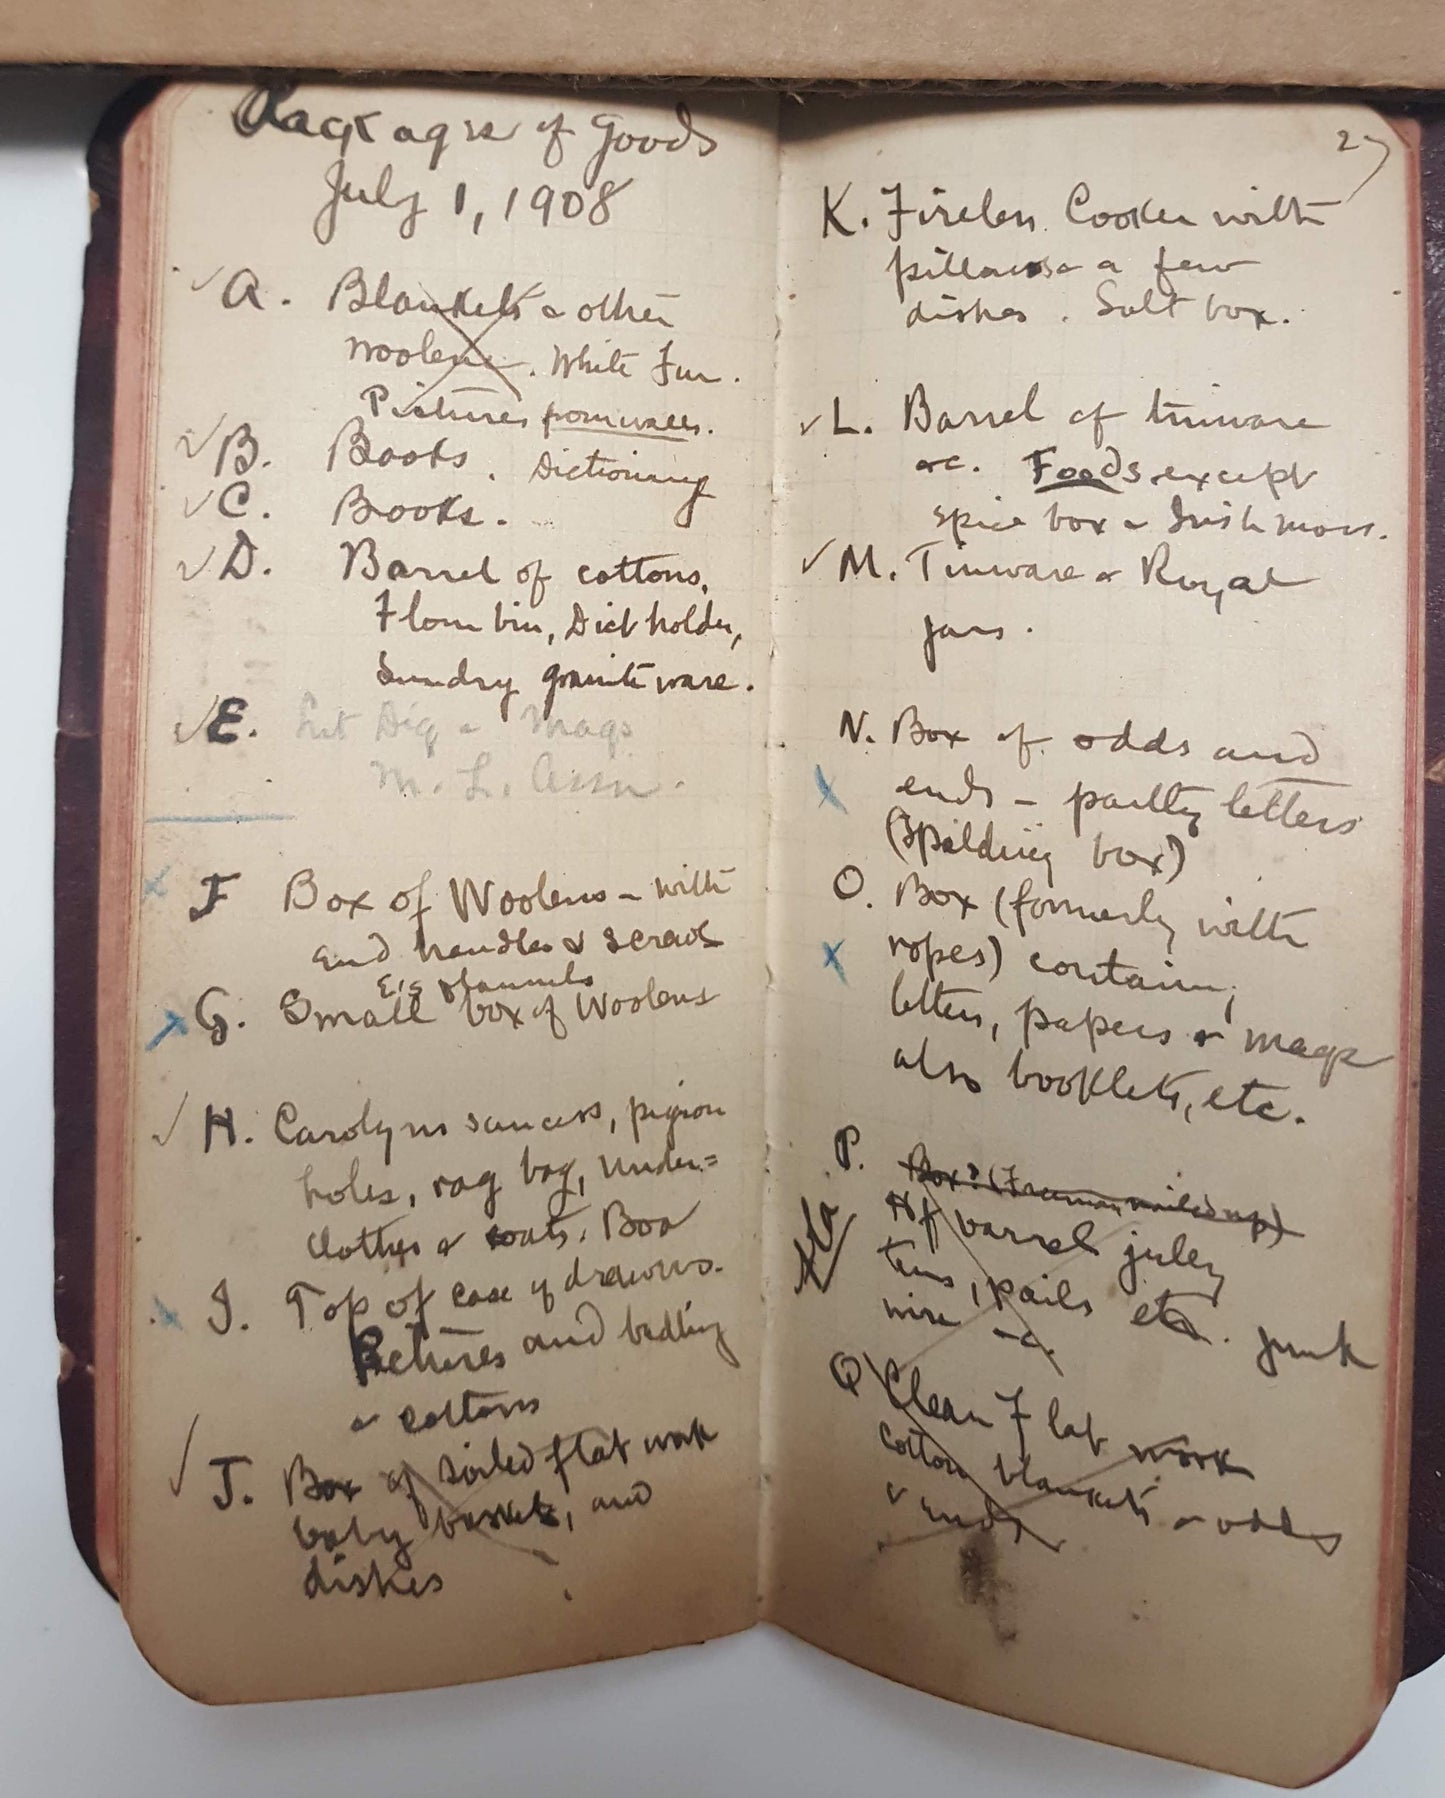 Packages of Goods
July 1, 1908
A. Blankets & other
woolens. White Fur.
Pictures from walls.
B. Books. Dictionary
C. Books.
D. Barrel of cottons,
Flour bin, Dict holder,
Sundry granite ware.
E. Lit Dig & Mags
M. L. Assn.
F Box of Woolens - with
end handles & screws
E's flannels
G. Small box of Woolens
H. Carolyns saucers, pigeon
holes, rag bag, under=
clothes & coats. Boa
I. Top of case of drawers.
Pictures and bedding
& cottons
J. Box of soiled flat work
baby basket, and
dishes
27
K. Fireless Cooker with
pillows & a few
dishes. Salt box.
L. Barrel of tinware
&c. Foods except
spice box & Irish moss.
M. Tinware & Royal
jars.
N. Box of odds and
ends - partly letters
(Spalding box)
O. Box (formerly with
ropes) contain,
letters, papers & mags
also booklets, etc.
P. Box? nailed up)
Hf barrel jelly
tins, pails etc. junk
wire &c.
Q Clean Flat work
cotton blankets & odds
& ends